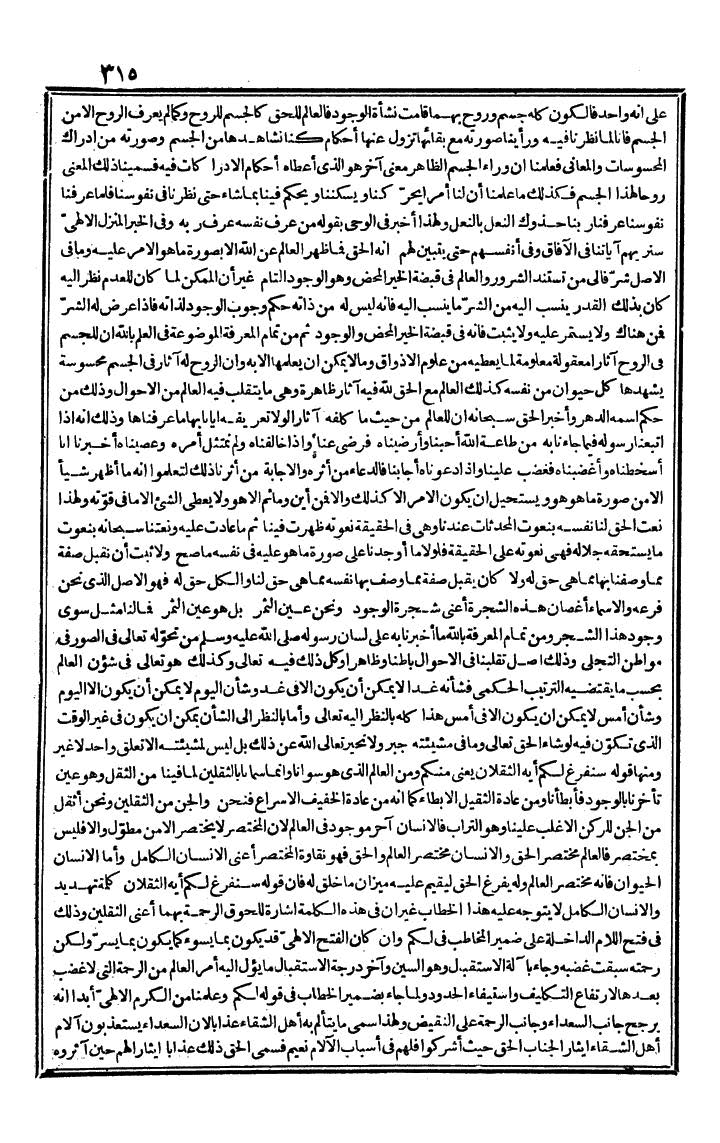 ٣١٥
على انه واحد فالكون كله جسم وروح بهما قامت نشأة الوجود فالعالم للحق كالجسم للروح وكما لم يعرف الروح الا من
الجسم فانا لما نظرنا فيه ورأينا صورته مع بقائها تزول عنها أحكام كنا نشاهدها من الجسم وصورته من ادراك
المحسوسات والمعانى فعلمنا ان وراء الجسم الظاهر معنى آخر هو الذى أعطاه أحكام الادراكات فيه فسمينا ذلك المعنى
روحا لهذا الجسم فكذلك ما علمنا أن لنا أمرا يحرّكنا ويسكننا ويحكم فينا بما شاء حتى نظرنا فى نفوسنا فلما عرفنا
نفوسنا عرفنا ربنا حذوك النعل بالنعل ولهذا أخبر فى الوحى بقوله من عرف نفسه عرف ربه وفى الخبر المنزل الالهىّ
سنريهم آياتنا فى الآفاق وفى أنفسهم حتى يتبين لهم انه الحق فما ظهر العالم عن الله الا بصورة ما هو الامر عليه وما فى
الاصل شرّ فالى من تستند الشرور والعالم فى قبضة الخير المحض وهو الوجود التام غير أن الممكن لما كان للعدم نظر اليه
كان بذلك القدر ينسب اليه من الشرّ ما ينسب اليه فانه ليس له من ذاته حكم وجوب الوجود لذاته فاذا عرض له الشرّ
فمن هناك ولا يستمر عليه ولا يثبت فانه فى قبضة الخير المحض والوجود ثم من تمام المعرفة الموضوعة فى العلم بالله ان للجسم
فى الروح آثارا معقولة معلومة لما يعطيه من علوم الاذواق وما لا يمكن ان يعلمها الا به وان الروح له آثار فى الجسم محسوسة
يشهدها كل حيوان من نفسه كذلك العالم مع الحق لله فيه آثار ظاهرة وهى ما يتقلب فيه العالم من الاحوال وذلك من
حكم اسمه الدهر وأخبر الحق سبحانه ان للعالم من حيث ما كلفه آثارا لولا تعريفه ايانا بها ما عرفناها وذلك انه اذا
اتبعنا رسوله فيما جاءنا به من طاعة الله أحبنا وأرضيناه فرضى عنا واذا خالفناه ولم نمتثل أمره وعصيناه أخبرنا انا
أسخطناه وأغضبناه فغضب علينا واذا دعوناه أجابنا فالدعاء من أثره والاجابة من أثرنا ذلك لتعلموا انه ما أظهر شيأ
الا من صورة ما هو هو ويستحيل ان يكون الامر الا كذلك والا فمن أين وما ثم الا هو ولا يعطى الشئ الا ما فى قوّته ولهذا
نعت الحق لنا نفسه بنعوت المحدثات عندنا وهى فى الحقيقة نعوته ظهرت فينا ثم ما عادت عليه ونعتنا سبحانه بنعوت
ما يستحقه جلاله فهى نعوته على الحقيقة فلولا ما أوجدنا على صورة ما هو عليه فى نفسه ما صح ولا ثبت أن نقبل صفة
مما وصفنا بها مما هى حق له ولا كان يقبل صفة مما وصف بها نفسه مما هى حق لنا والكل حق له فهو الاصل الذى نحن
فرعه والاسماء أغصان هذه الشجرة أعنى شجرة الوجود ونحن عين الثمر بل هو عين الثمر فما لنا مثل سوى
وجود هذا الشجر ومن تمام المعرفة بالله ما أخبرنا به على لسان رسوله صلى الله عليه وسلم من تحوّله تعالى فى الصور فى
مواطن التجلى وذلك اصل تقلبنا فى الاحوال باطنا وظاهرا وكل ذلك فيه تعالى وكذلك هو تعالى فى شؤن العالم
بحسب ما يقتضيه الترتيب الحكمى فشأنه غدا لا يمكن أن يكون الا فى غد وشأن اليوم لا يمكن أن يكون الا اليوم
وشأن أمس لا يمكن ان يكون الا فى أمس هذا كله بالنظر اليه تعالى وأما بالنظر الى الشأن يمكن ان يكون فى غير الوقت
الذى تكوّن فيه لو شاء الحق تعالى وما فى مشيئته جبر ولا تحير تعالى الله عن ذلك بل ليس لمشيئته الا تعلق واحد لا غير
ومنها قوله سنفرغ لكم أيه الثقلان يعنى منكم ومن العالم الذى هو سوانا وانما سمانا بالثقلين لما فينا من الثقل وهو عين
تأخرنا بالوجود فأبطأنا ومن عادة الثقيل الابطاء كما انه من عادة الخفيف الاسراع فنحن والجن من الثقلين ونحن أثقل
من الجن للركن الاغلب علينا وهو التراب فالانسان آخر موجود فى العالم لان المختصر لا يختصر الا من مطوّل والا فليس
بمختصر فالعالم مختصر الحق والانسان مختصر العالم والحق فهو نقاوة المختصر أعنى الانسان الكامل وأما الانسان
الحيوان فانه مختصر العالم وله يفرغ الحق ليقيم عليه ميزان ما خلق له فان قوله سنفرغ لكم أيه الثقلان كلمة تهديد
والانسان الكامل لا يتوجه عليه هذا الخطاب غير ان فى هذه الكلمة اشارة للحوق الرحمة بهما أعنى الثقلين وذلك
فى فتح اللام الداخلة على ضمير المخاطب فى لكم وان كان الفتح الالهىّ قد يكون بما يسوء كما يكون بما يسرّ ولكن
رحمته سبقت غضبه وجاء بآلة الاستقبال وهو السين وآخر درجة الاستقبال ما يؤل اليه أمر العالم من الرحمة التى لا غضب
بعدها لارتفاع التكليف واستيفاء الحدود ولما جاء بضمير الخطاب فى قوله لكم وعلمنا من الكرم الالهىّ أبدا انه
يرجح جانب السعداء وجانب الرحمة على النقيض ولهذا سمى ما يتألم به أهل الشقاء عذابا لان السعداء يستعذبون آلام
أهل الشقاء ايثار الجناب الحق حيث أشركوا فلهم فى أسباب الآلام نعيم فسمى الحق ذلك عذابا ايثارا لهم حين آثروه